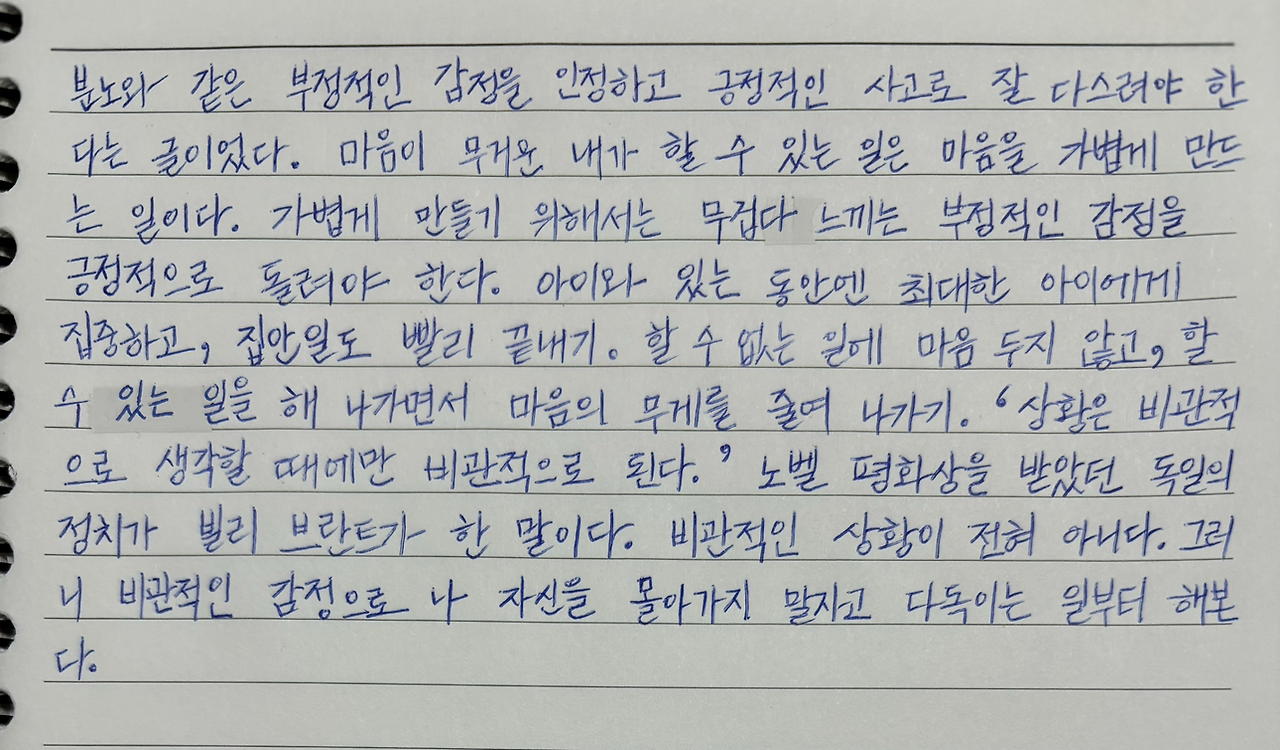 분노와 같은 부정적인 감정을 인정하고 긍정적인 사고로 잘 다스려야 한
다는 글이었다. 마음이 무거운 내가 할 수 있는 일은 마음을 가볍게 만드
는 일이다. 가볍게 만들기 위해서는 무겁다 느끼는 부정적인 감정을
긍정적으로 돌려야 한다. 아이와 있는 동안엔 최대한 아이에게
집중하고, 집안일도 빨리 끝내기. 할 수 없는 일에 마음 두지 않고, 할
수 있는 일을 해 나가면서 마음의 무게를 줄여 나가기. ‘상황은 비관적
으로 생각할 때에만 비관적으로 된다.’ 노벨 평화상을 받았던 독일의
정치가 빌리 브란트가 한 말이다. 비관적인 상황이 전혀 아니다. 그러
니 비관적인 감정으로 나 자신을 몰아가지 말자고 다독이는 일부터 해본
다.